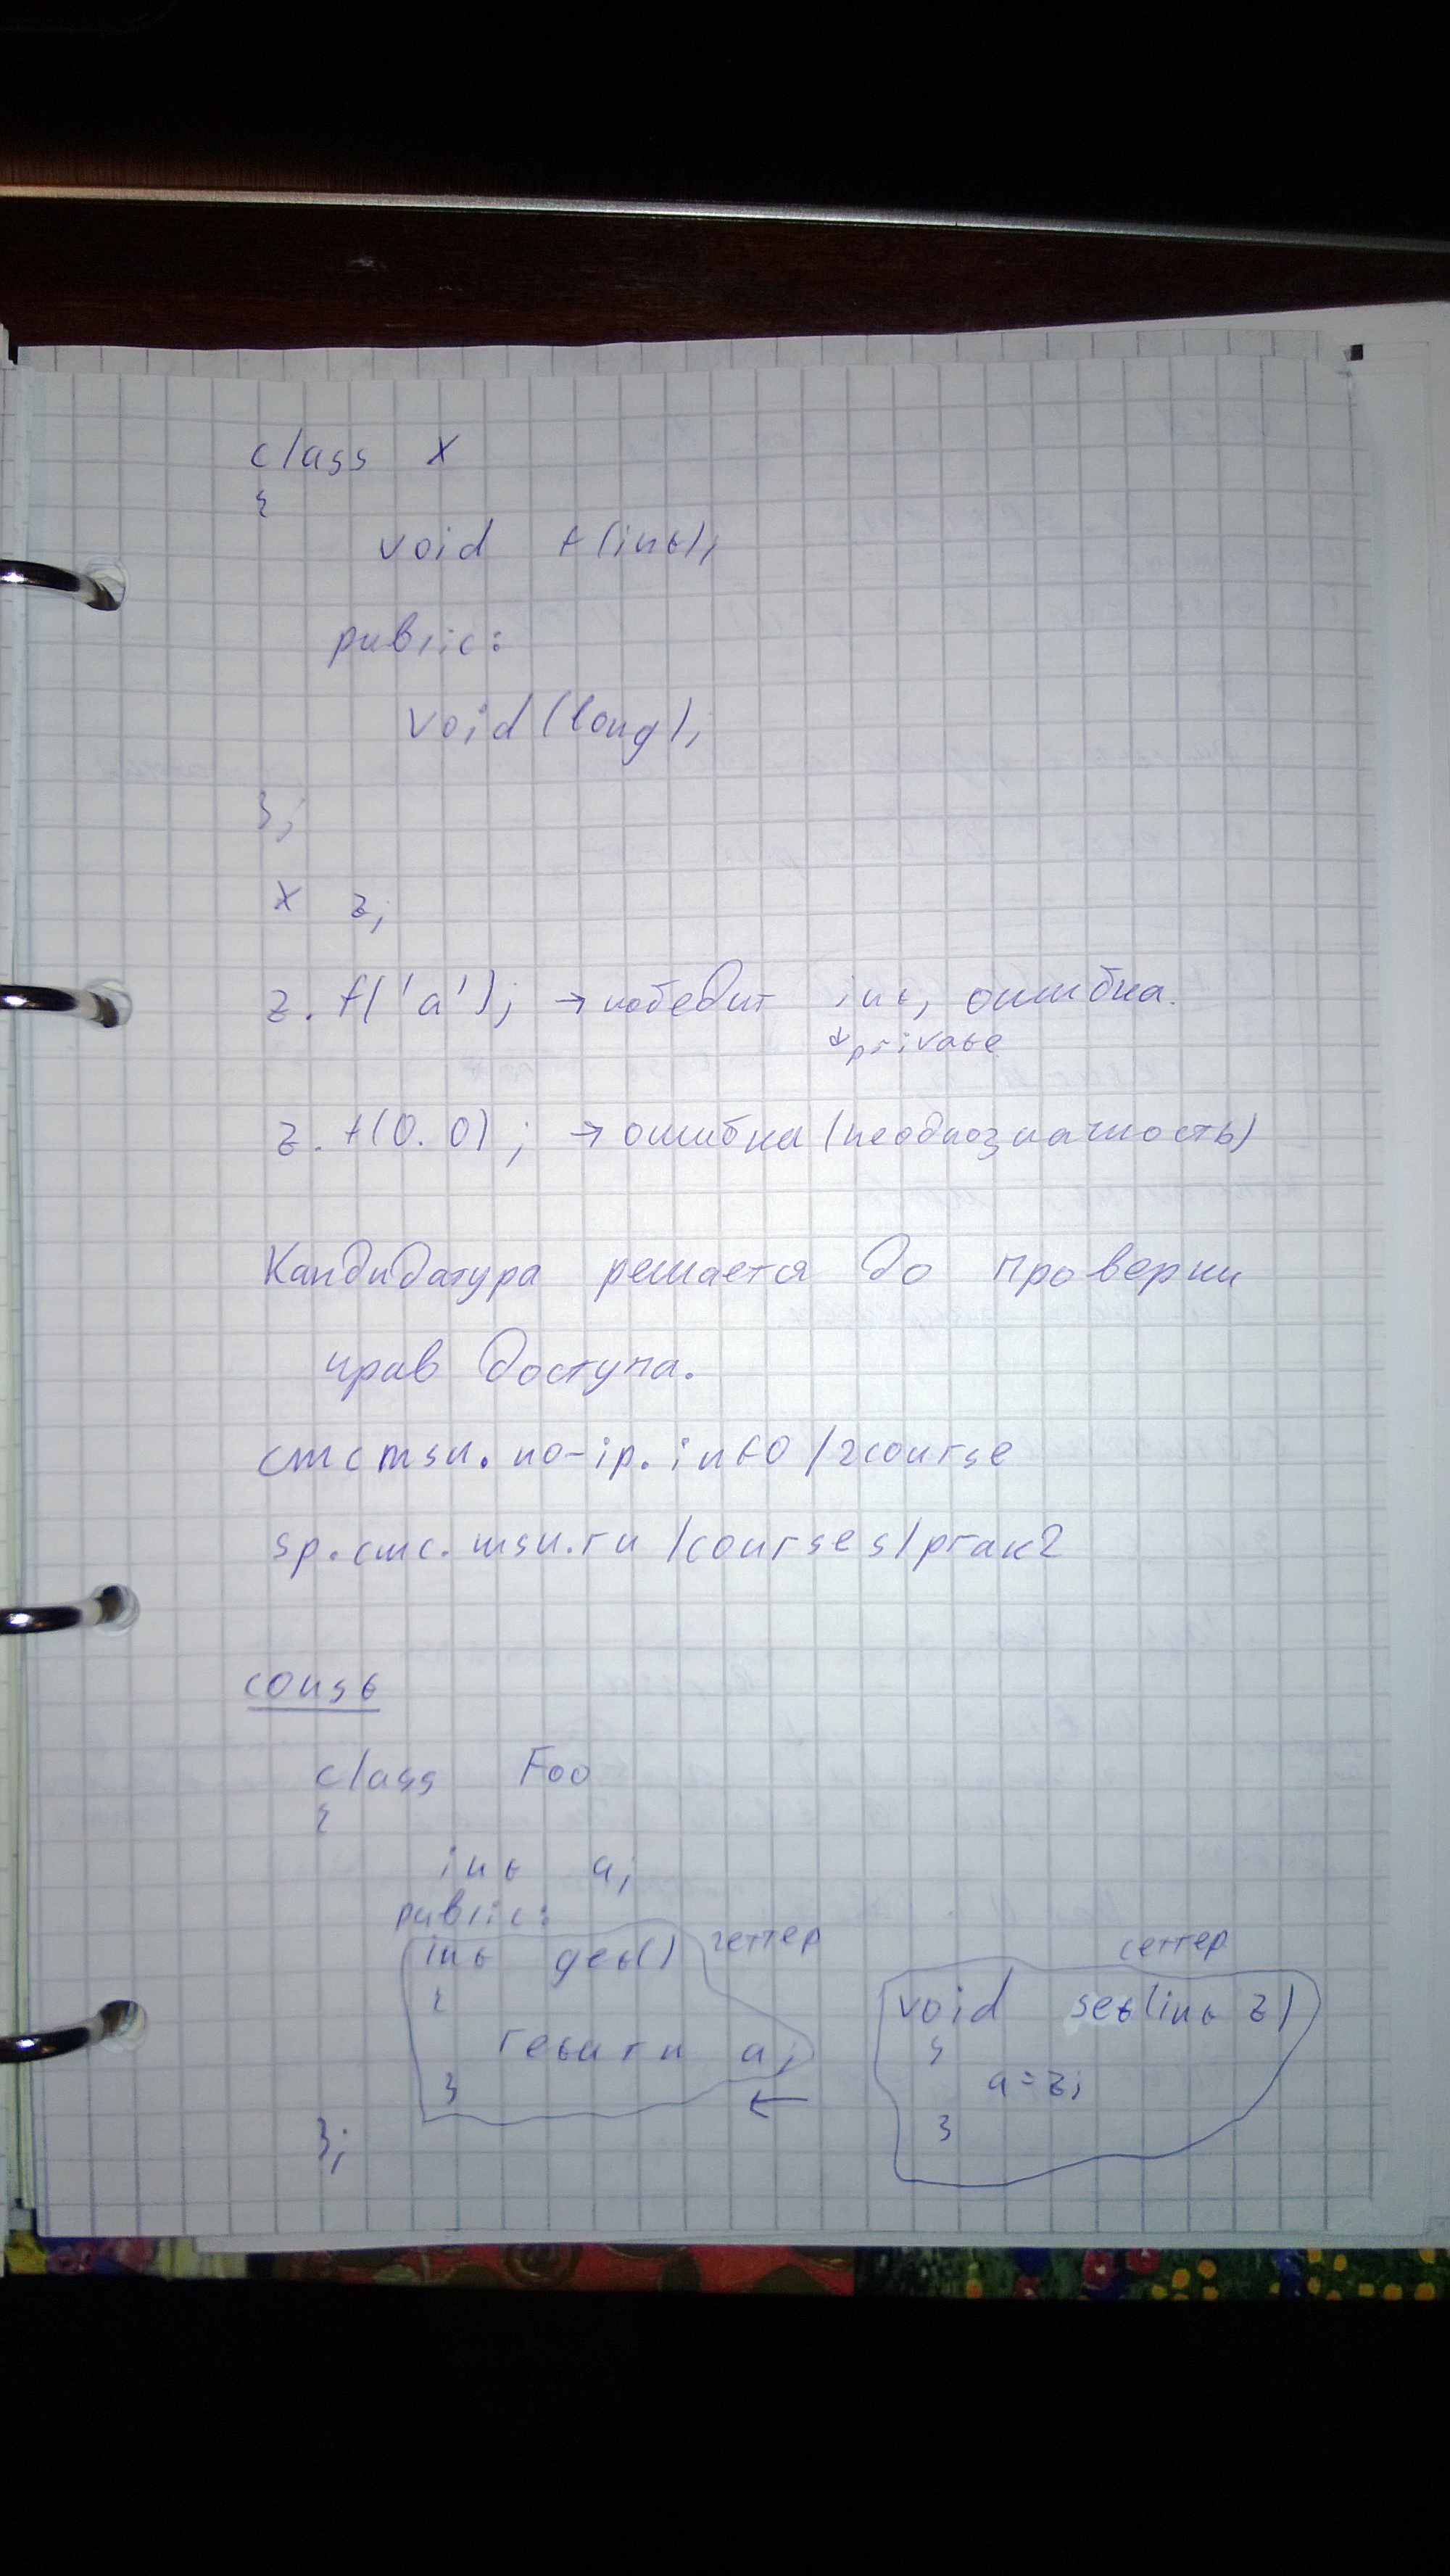 class X
{
void f(int);
public:
void(long);
};
X z;
z. f('a'); → победит int, ошибка.
↓private
z. f(0.0); → ошибка (неоднозначность)
Кандидатура решается до проверки
прав доступа.
cmcmsu.no-ip.info/2course
sp.cmc.msu.ru/courses/prak2
const
class Foo
{
int a;
public:
int get() геттер
{
return a;
}
←
};
сеттер
void set(int z)
{
a=z;
}